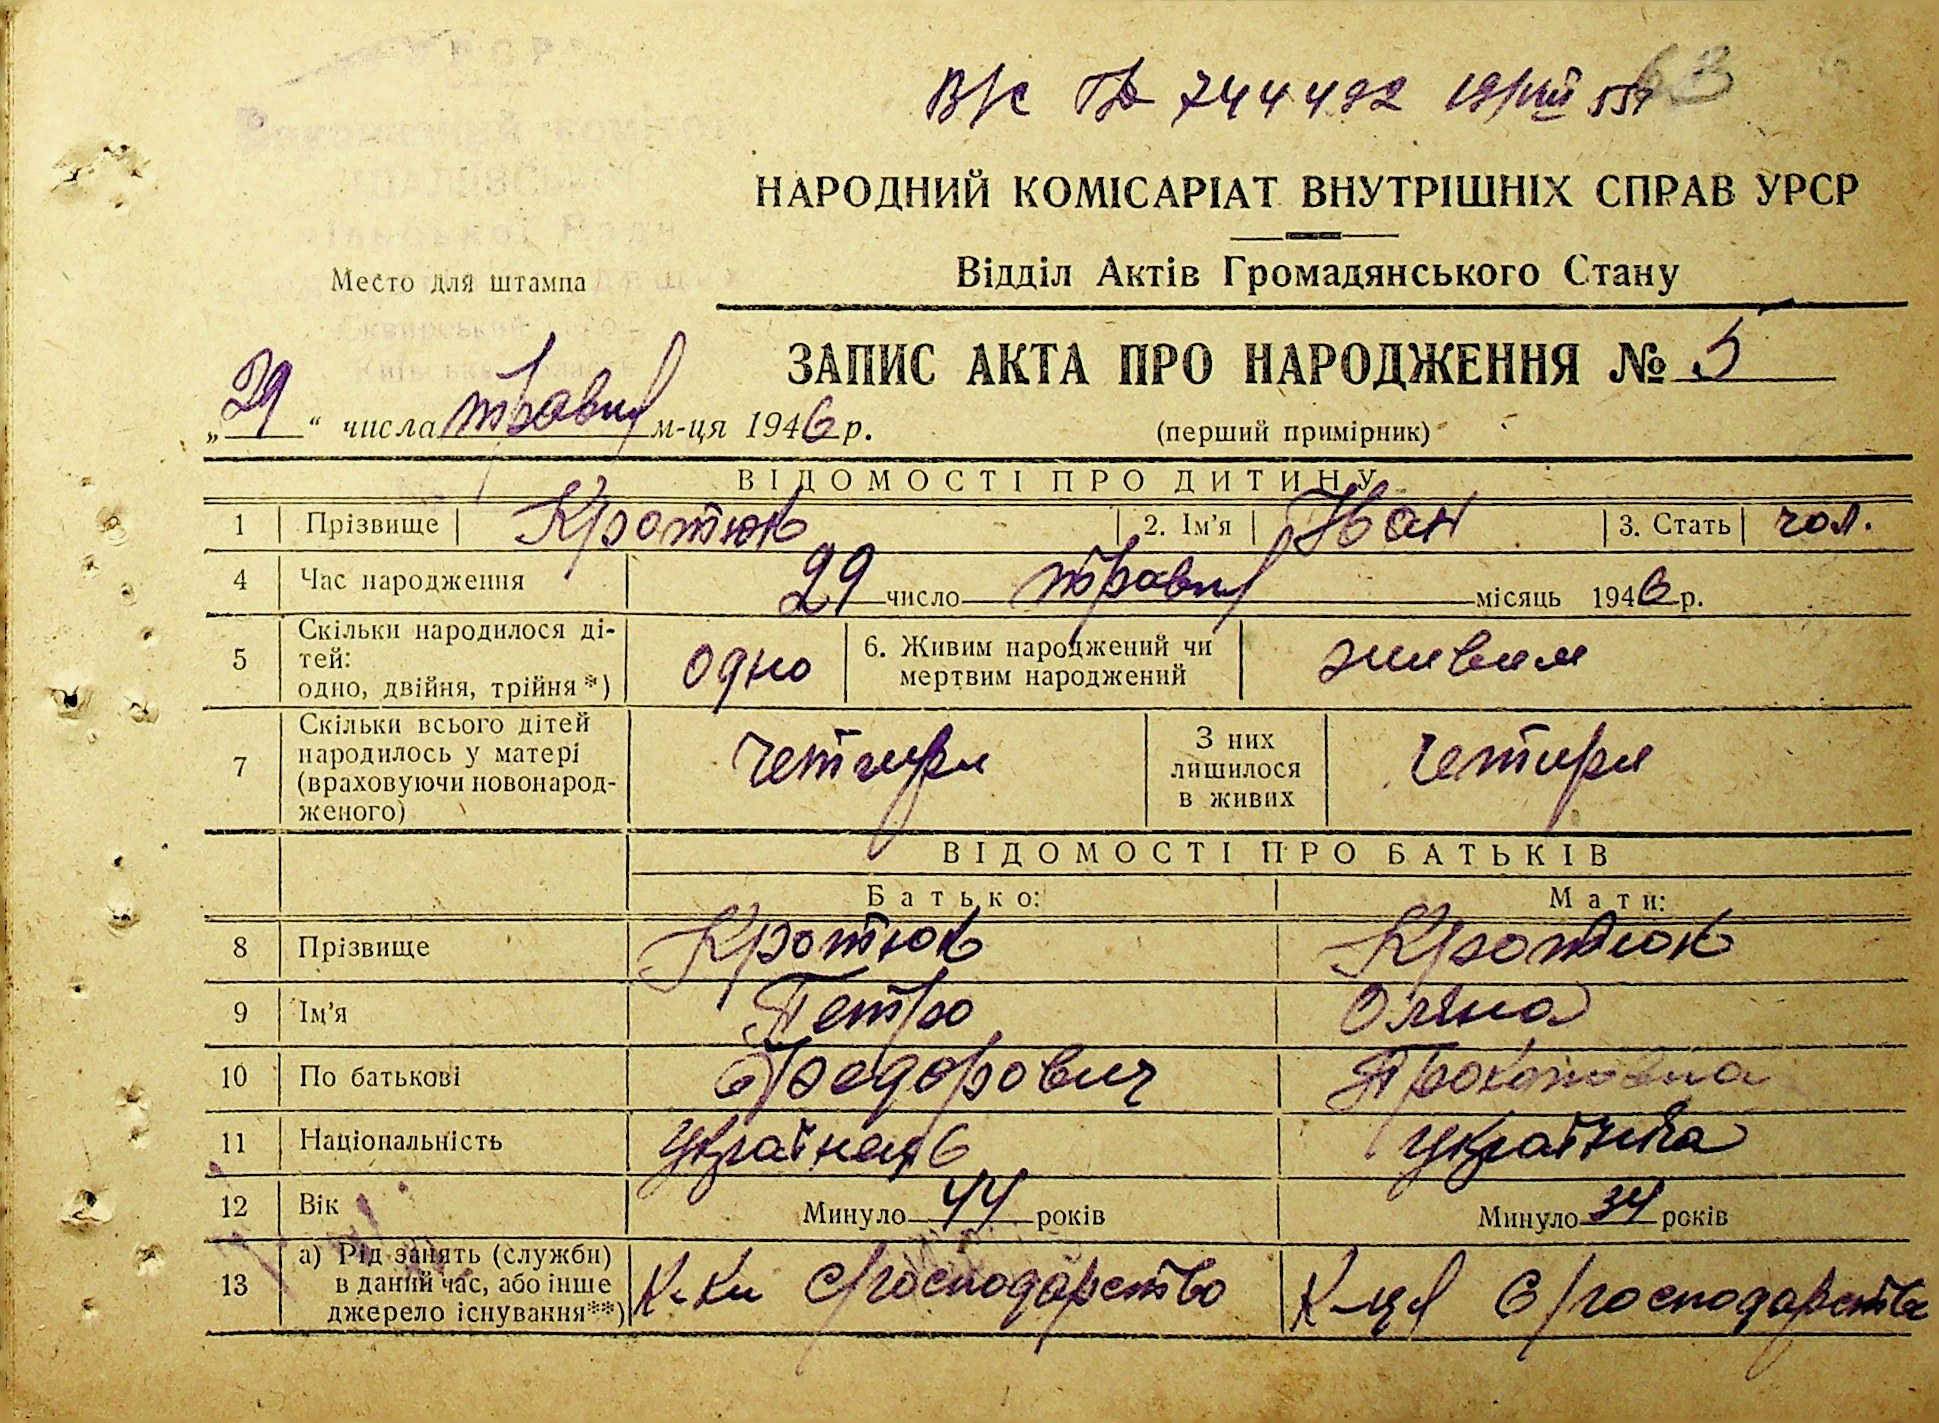 В/с ГД 744492 19/VIII 55
63
НАРОДНИЙ КОМІСАРІАТ ВНУТРІШНІХ СПРАВ УРСР
Відділ Актів Громадянського Стану
Место для штампа
ЗАПИС АКТА ПРО НАРОДЖЕННЯ № 5
„29“ числа травня м-ця 1946 р. (перший примірник)
ВІДОМОСТІ ПРО ДИТИНУ
1 Прізвище Кротюк 2. Ім'я Іван 3. Стать чол.
4 Час народження 29 число травня місяць 1946 р.
5 Скільки народилося ді-
тей:
одно, двійня, трійня *) одно 6. Живим народжений чи
мертвим народжений живим
7 Скільки всього дітей
народилось у матері
(враховуючи новонарод-
женого) четири З них
лишилося
в живих четири
ВІДОМОСТІ ПРО БАТЬКІВ
Батько: Мати:
8 Прізвище Кротюк Кротюк
9 Ім'я Петро Оляна
10 По батькові Федорович Прокоповна
11 Національність українець українка
12 Вік Минуло 44 років Минуло 34 років
13 а) Рід занять (служби)
в даний час, або інше
джерело існування**) с/господарство с/господарства